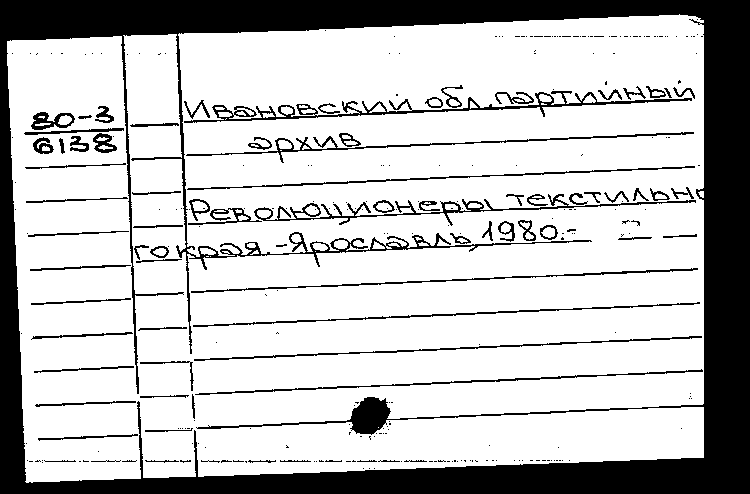 80-3
6138
Ивановский обл. партийный
архив
Революционеры текстильно
го края.-Ярославль, 1980.-